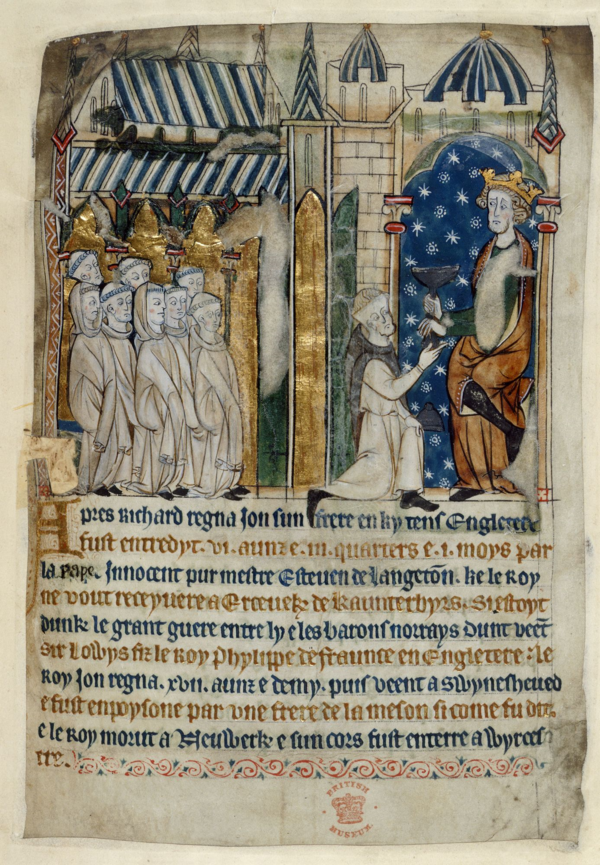 Apres Richard regna Jon sun frere en ky tens Engletere
fust entredyt . vi . aunz e . iii . quarters e . i . moys par
la pape . Innocent pur mestre Esteuen de Langeton . ke le Roy
ne vout receyuere a Erceuesk de Kaunterbyrs . Si estoyt
dunk le grant guere entre ly e les barons norrays dunt veent
sir Lowys fiz le Roy Phylippe de fraunce en Engletere . Le
Roy Jon regna . xvii . aunz e demy . puis veent a Swynesheued
e fust enpoysone par vne frere de la meson si come fu dit
e le Roy morut a Neuwerk e sun cors fust enterre a wyrces
tre .
BRITISH
MUSEUM